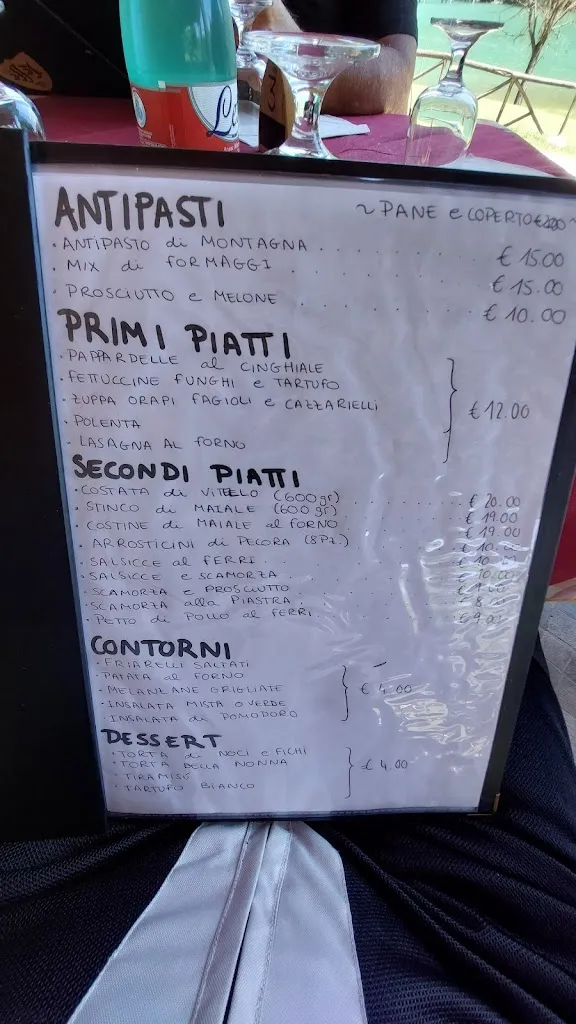 Le
3
ANTIPASTI
~ PANE e COPERTO €2.00 ~
· ANTIPASTO di MONTAGNA . . . . € 15.00
· MIX di FORMAGGI . . . . € 15.00
· PROSCIUTTO e MELONE . . . . € 10.00
PRIMI PIATTI
· PAPPARDELLE al CINGHIALE
· FETTUCCINE FUNGHI e TARTUFO
· ZUPPA ORAPI FAGIOLI e CAZZARIELLI
€ 12.00
· POLENTA
· LASAGNA AL FORNO
SECONDI PIATTI
· COSTATA di VITELLO (600gr) . . . . € 20.00
· STINCO di MAIALE (600gr) . . . . € 19.00
· COSTINE di MAIALE al FORNO . . . . € 19.00
· ARROSTICINI di PECORA (8Pz.) . . . . € 10.00
· SALSICCE al FERRI . . . . € 10.00
· SALSICCE e SCAMORZA . . . . € 10.00
· SCAMORZA e PROSCIUTTO . . . .
· SCAMORZA alla PIASTRA . . . . € 8.00
· PETTO di POLLO al FERRI . . . . € 9.00
CONTORNI
· FRIARELLI SALTATI
· PATATA al FORNO
· MELANZANE GRIGLIATE
€ 4.00
· INSALATA MISTA O VERDE
· INSALATA di POMODORO
DESSERT
· TORTA di NOCI e FICHI
· TORTA DELLA NONNA
€ 4.00
· TIRAMISÙ
· TARTUFO BIANCO